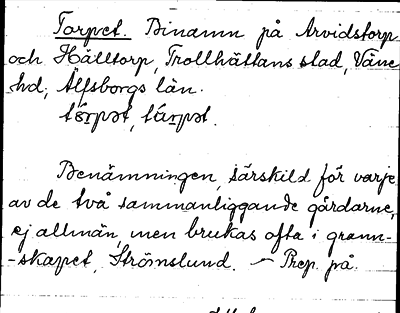 Torpet. Binamn på Arvidstorp
och Hälltorp, Trollhättans stad, Väne
hd, Älfsborgs län.
tɷrpət, tɷrpət.
Benämningen, särskild för varje
av de två sammanliggande gårdarne,
ej allmän, men brukas ofta i grann-
-skapet, Strömslund. – Prep. på.